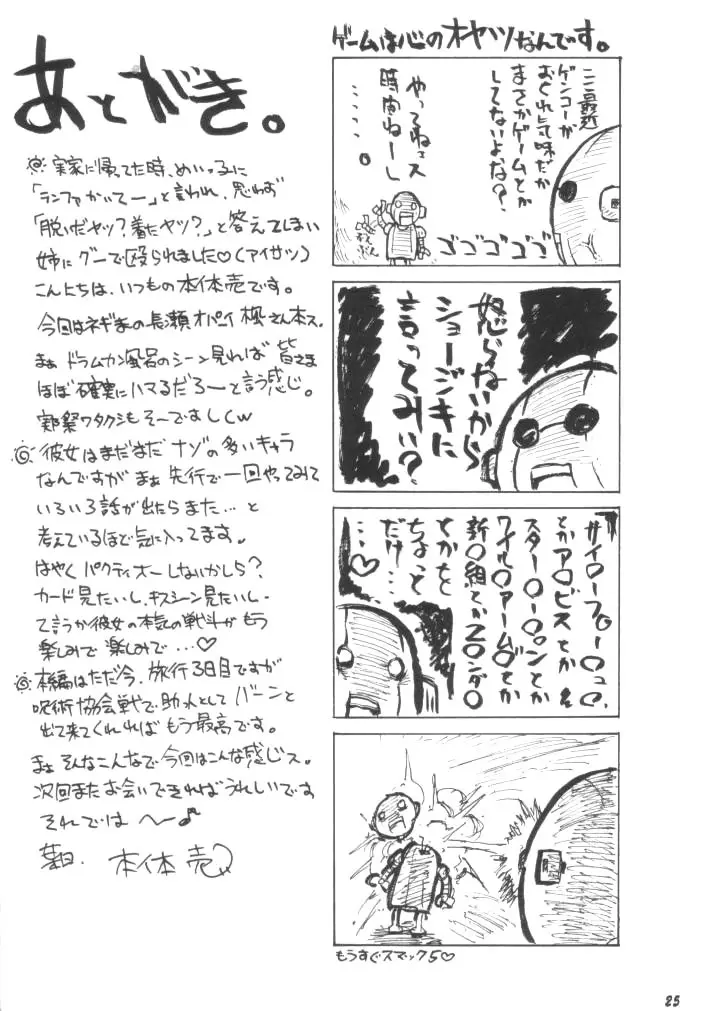 あとがき。
実家に帰ってた時、めいっ子に
「ランファかいてー」と言われ、思わず
「脱いだヤツ?着たヤツ?」と答えてしまい
姉にグーで殴られました♡(アイサツ)
こんにちは、いつもの本体売です。
今回はネギまの長瀬オパーイ楓さん本ス。
まぁドラムカン風呂のシーン見れば皆さま
ほぼ確実にハマるだろーと言う感じ。
実際ワタクシもそーですしくw
彼女はまだまだナゾの多いキャラ
なんですがまぁ先行で一回やってみて
いろいろ話が出たらまた…と
考えているほど気に入ってます。
はやくパクティオーしないかしら?
カード見たいし、キスシーン見たいし、
て言うか彼女の本気の戦斗がもう
楽しみで楽しみで…♡
本編はただ今、旅行3日目ですが
呪術協会戦で助っ人としてバーンと
出て来てくれればもう最高です。
まぁそんなこんなで今回はこんな感じス。
次回またお会いできればうれしいです
それでは〜♪
本体売
ゲームは心のオヤツなんです。
ここ最近
ゲンコーが
おくれ気味だか
まさかゲームとか
してないよな?
やってねェス
時間ねーし
……。
ゴゴゴゴゴ
怒らないから
ショージキに
言ってみい?
サイ○ーフ○ー○ュ○、
とかア○ビスとか
スター○ー○ンとか
ワイル○アーム○とか
新○組とか
とかをと
ちょっと
だけ…
…♡
もうすぐスマック5♡
25